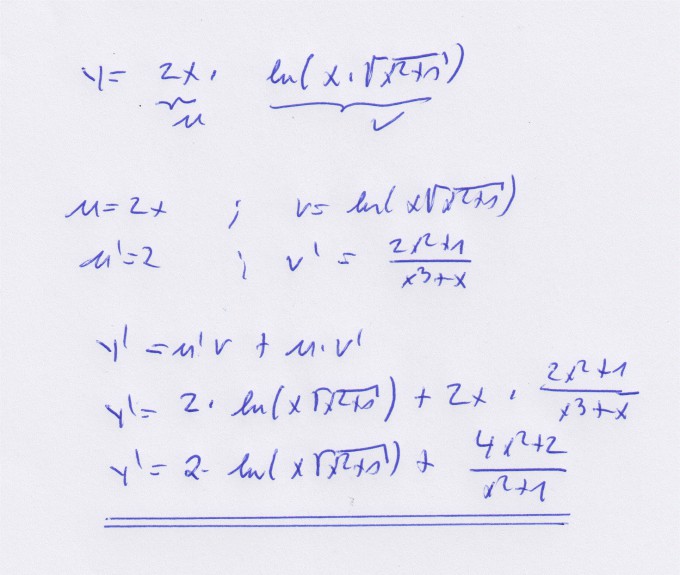 y = 2x · ln(x · √(x²+1))
u v
u = 2x ; v = ln(x√(x²+1))
u' = 2 ; v' = (2x²+1)/(x³+x)
y' = u'v + u·v'
y' = 2 · ln(x√(x²+1)) + 2x · (2x²+1)/(x³+x)
y' = 2 · ln(x√(x²+1)) + (4x²+2)/(x²+1)